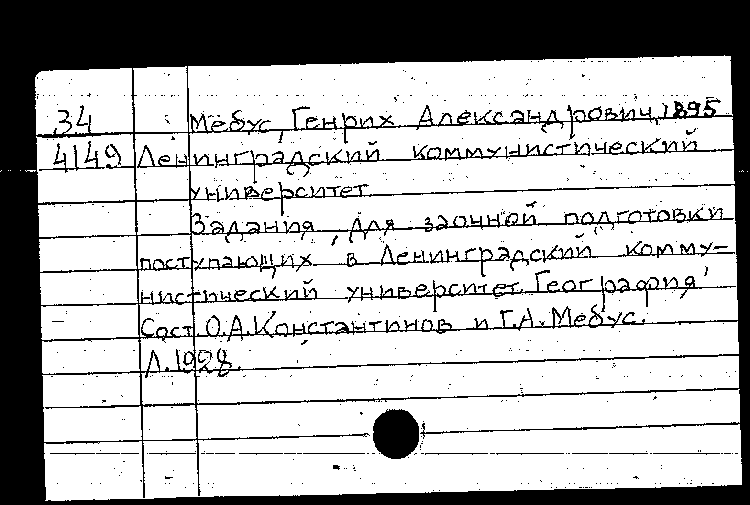 34 Мебус, Генрих Александрович, 1895
4149 Ленинградский коммунистический
университет
Задания для заочной подготовки
поступающих в Ленинградский комму-
нистический университет. География.
Сост. О.А.Константинов и Г.А.Мебус.
Л.1928.